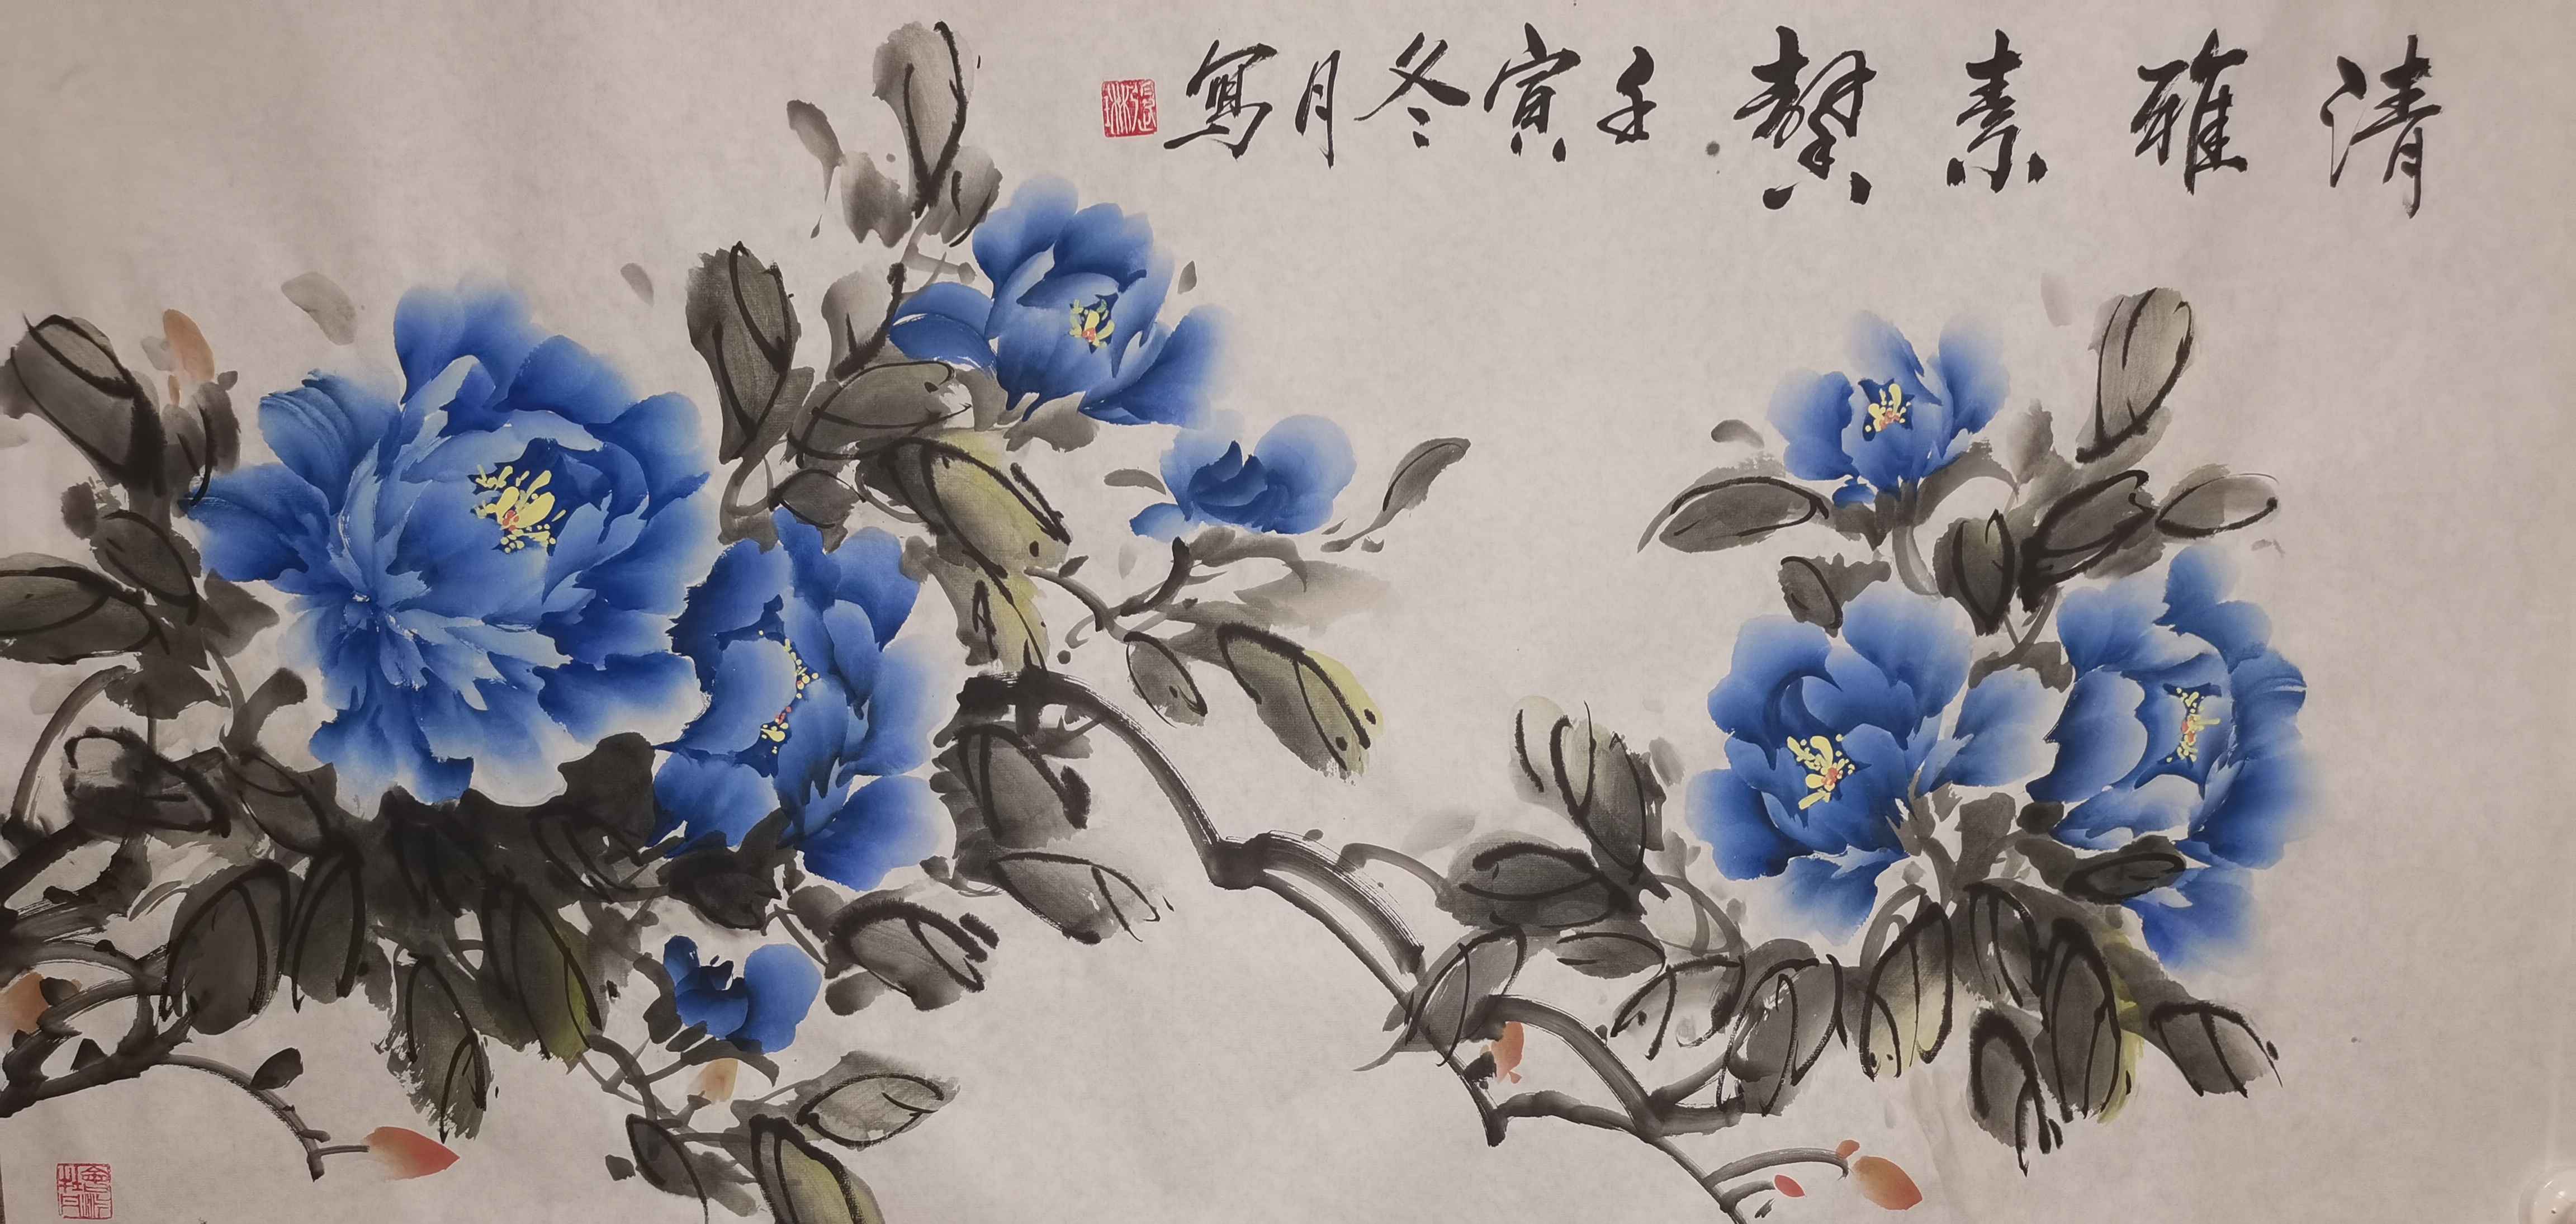 清雅素絜
壬寅冬月寫